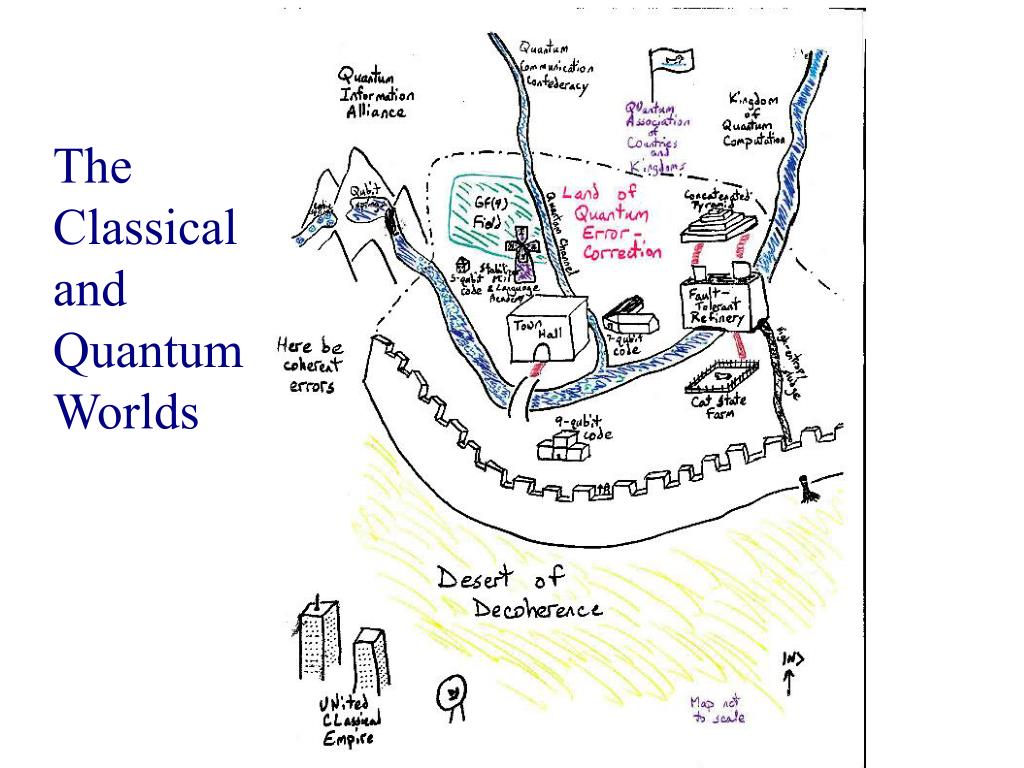 The
Classical
and
Quantum
Worlds
Quantum
Information
Alliance
Quantum
Communication
Confederacy
QUantum
Association
of
Countries
and
Kingdoms
Kingdom
of
Quantum
Computation
Qubit
Springs
GF(4)
Field
Quantum Channel
Land of
Quantum
Error-
Correction
Concatenated
Pyramid
5-qubit
code
Stabilizer
Mill
& Language
Academy
Town
Hall
7-qubit
code
Fault-
Tolerant
Refinery
High-entropy
sludge
Here be
coherent
errors
Cat State
Farm
9-qubit
code
Desert of
Decoherence
UNited
CLassical
Empire
|N>
Map not
to scale